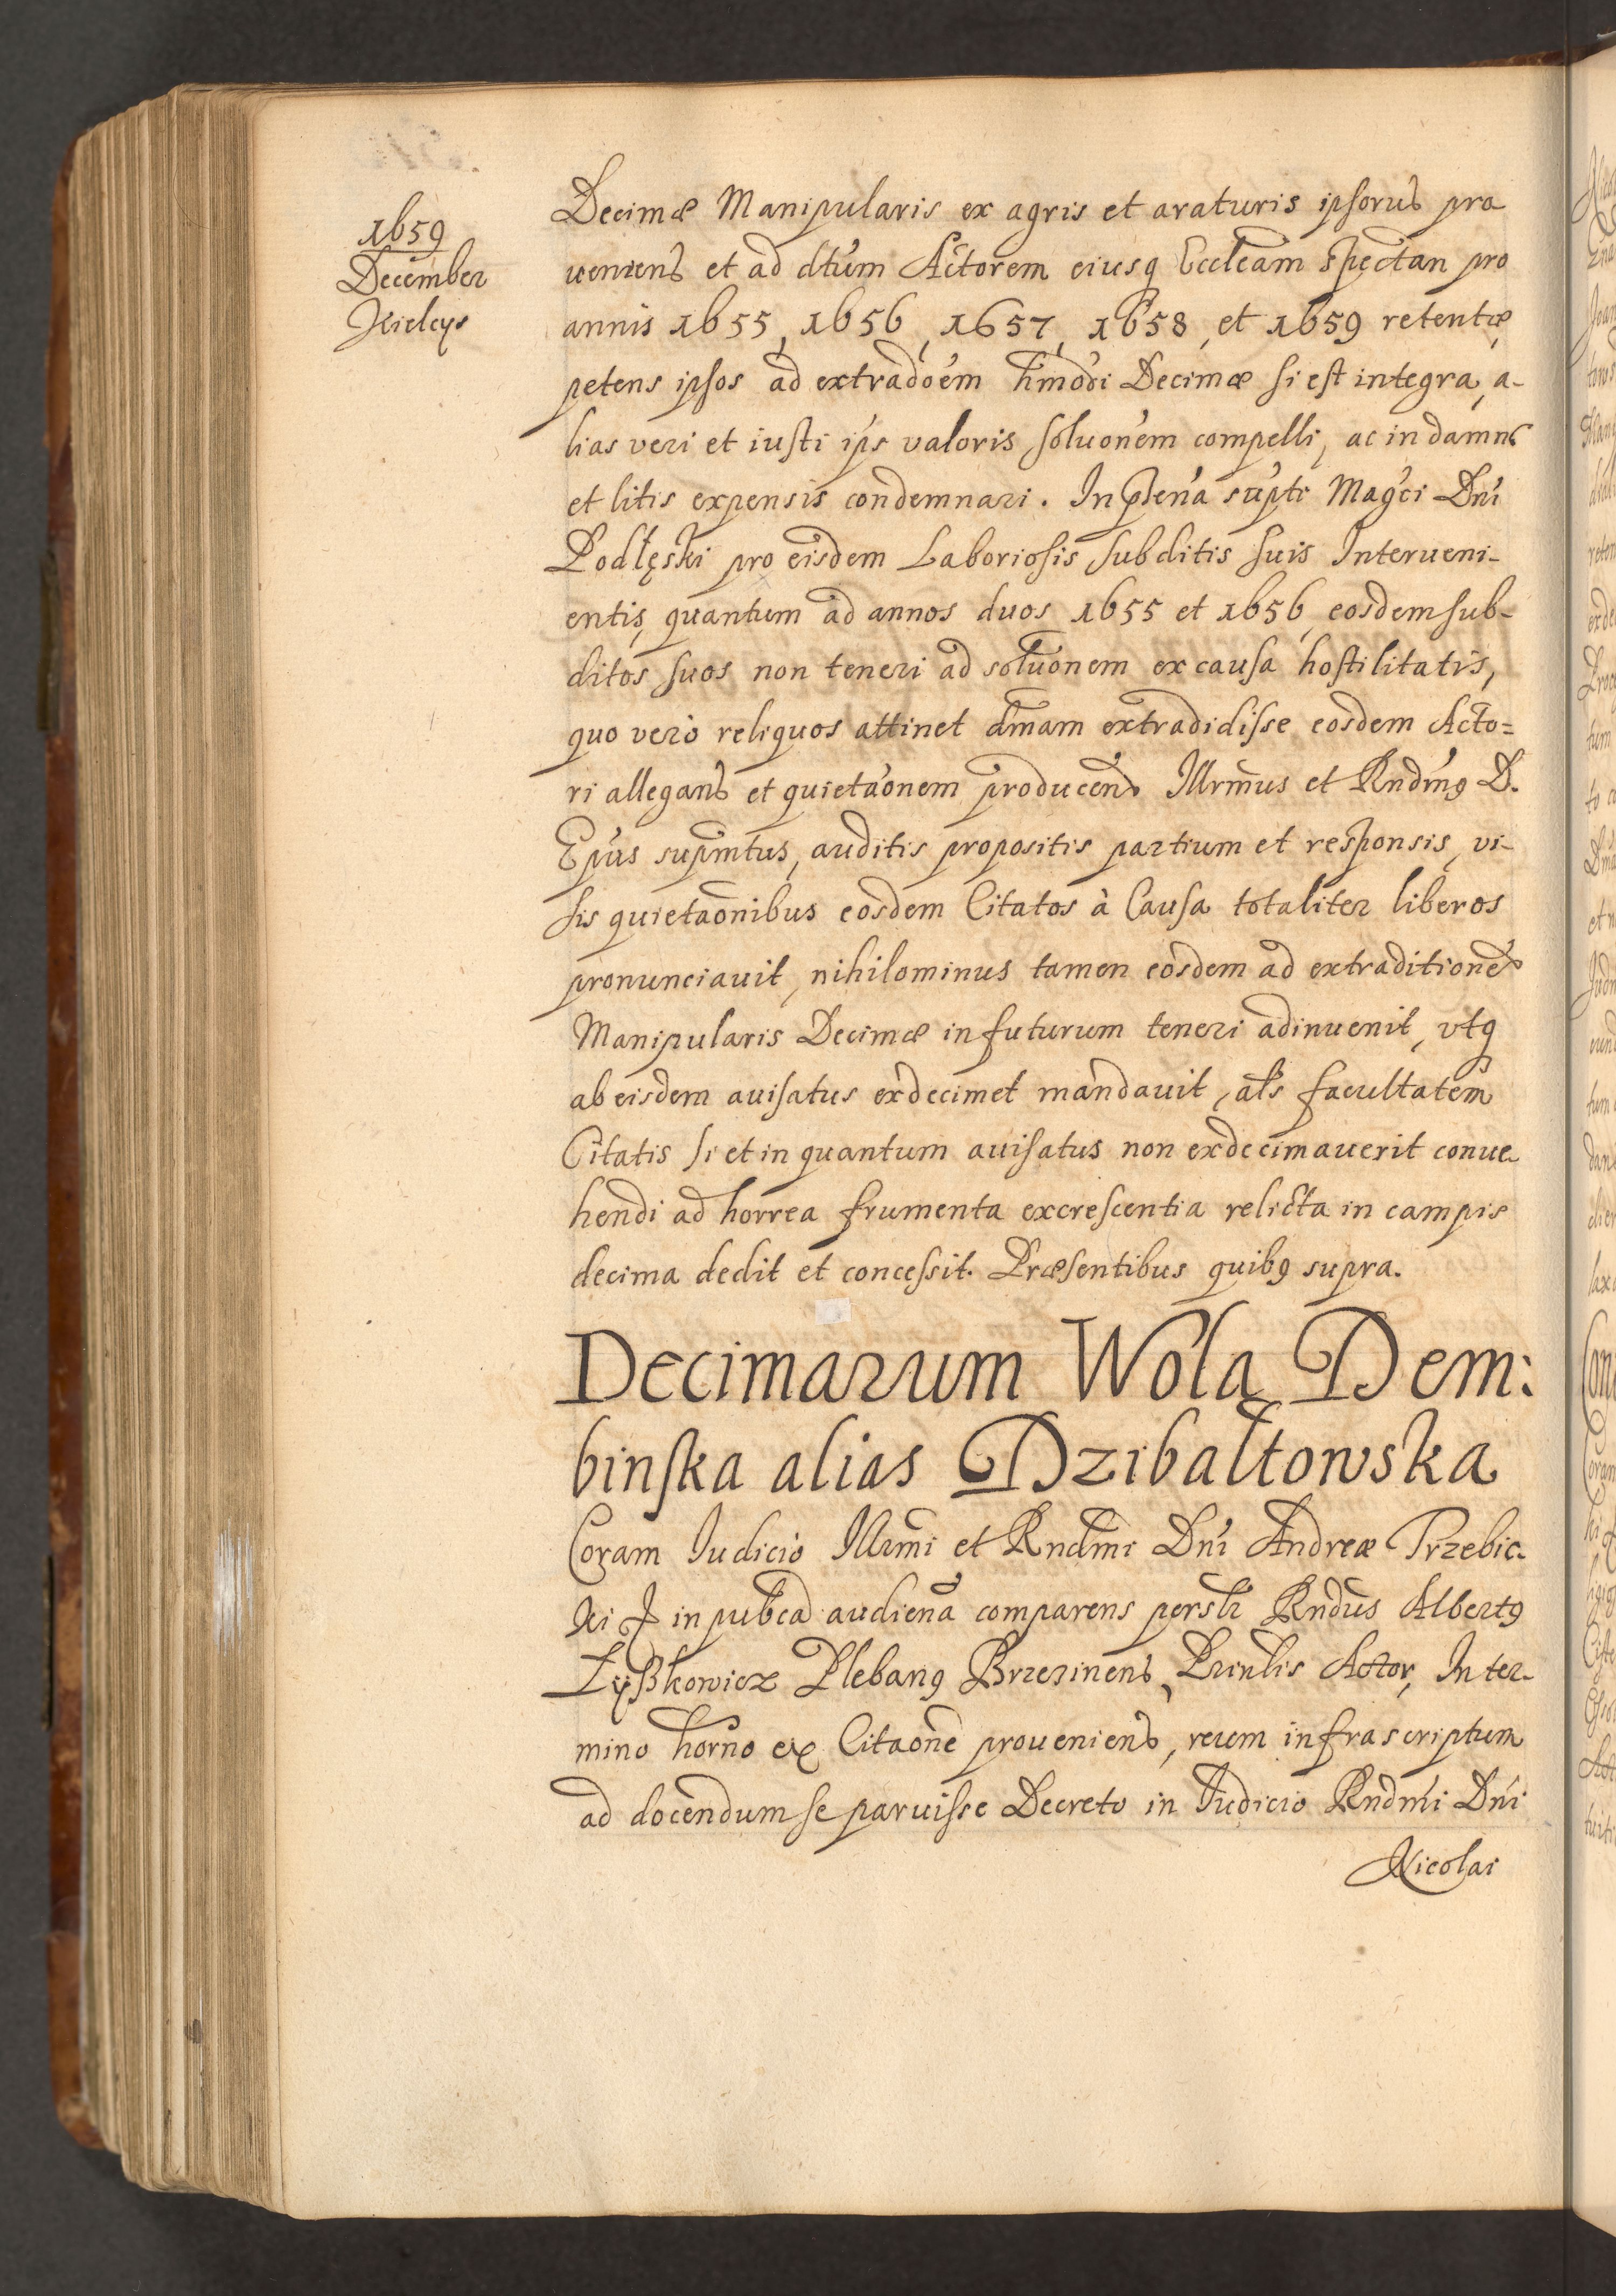 1659
December
Kielcys
Decimæ Manipularis ex agris et araturis ipsorũ pro
uenieñ et ad dtum Actorem eiusq Eccleam spectan pro
annis 1655, 1656, 1657, 1658, et 1659 retentæ,
petens ipsos ad extradoem hmodi Decimæ si est integra, a-
lias veri et iusti ips valoris soluonem compelli, ac in damnis
et litis expensis condemnari. In pñtia supti Magci Dni
Podłęski pro eisdem Laboriosis subditis suis Interueni-
entis, quantum ad annos duos 1655 et 1656, eosdem sub-
ditos suos non teneri ad soluonem ex causa hostilitatis,
quo vero reliquos attinet dmam extradidisse eosdem Acto=
ri allegans et quietaonem producens Illrmus et Rndmq D.
Epus supmtus, auditis propositis partium et responsis, vi-
sis quietaonibus eosdem Citatos à Causa totaliter liberos
pronunciauit, nihilominus tamen eosdem ad extraditionẽ
Manipularis Decimæ in futurum teneri adinuenit, vtq
ab eisdem auisatus exdecimet mandauit, als facultatem
Citatis si et in quantum auisatus non exdecimauerit conue-
hendi ad horrea frumenta excrescentia relicta in campis
decima dedit et concessit. Præsentibus quibq supra.
Decimarum Wola Dem:
binska alias Dzibałtowska
Coram Iudicio Illrmi et Rndmi Dni Andreæ Trzebic-
ki in pubca audiena comparens persłr Rndus Albertq
Łyßkowicz Plebanq Brzezinens, Prinlis Actor, In ter-
mino horno ex Citaone proueniens, reum infrascriptum
ad docendum se paruisse Decreto in Iudicio Rndmi Dni
Nicolai